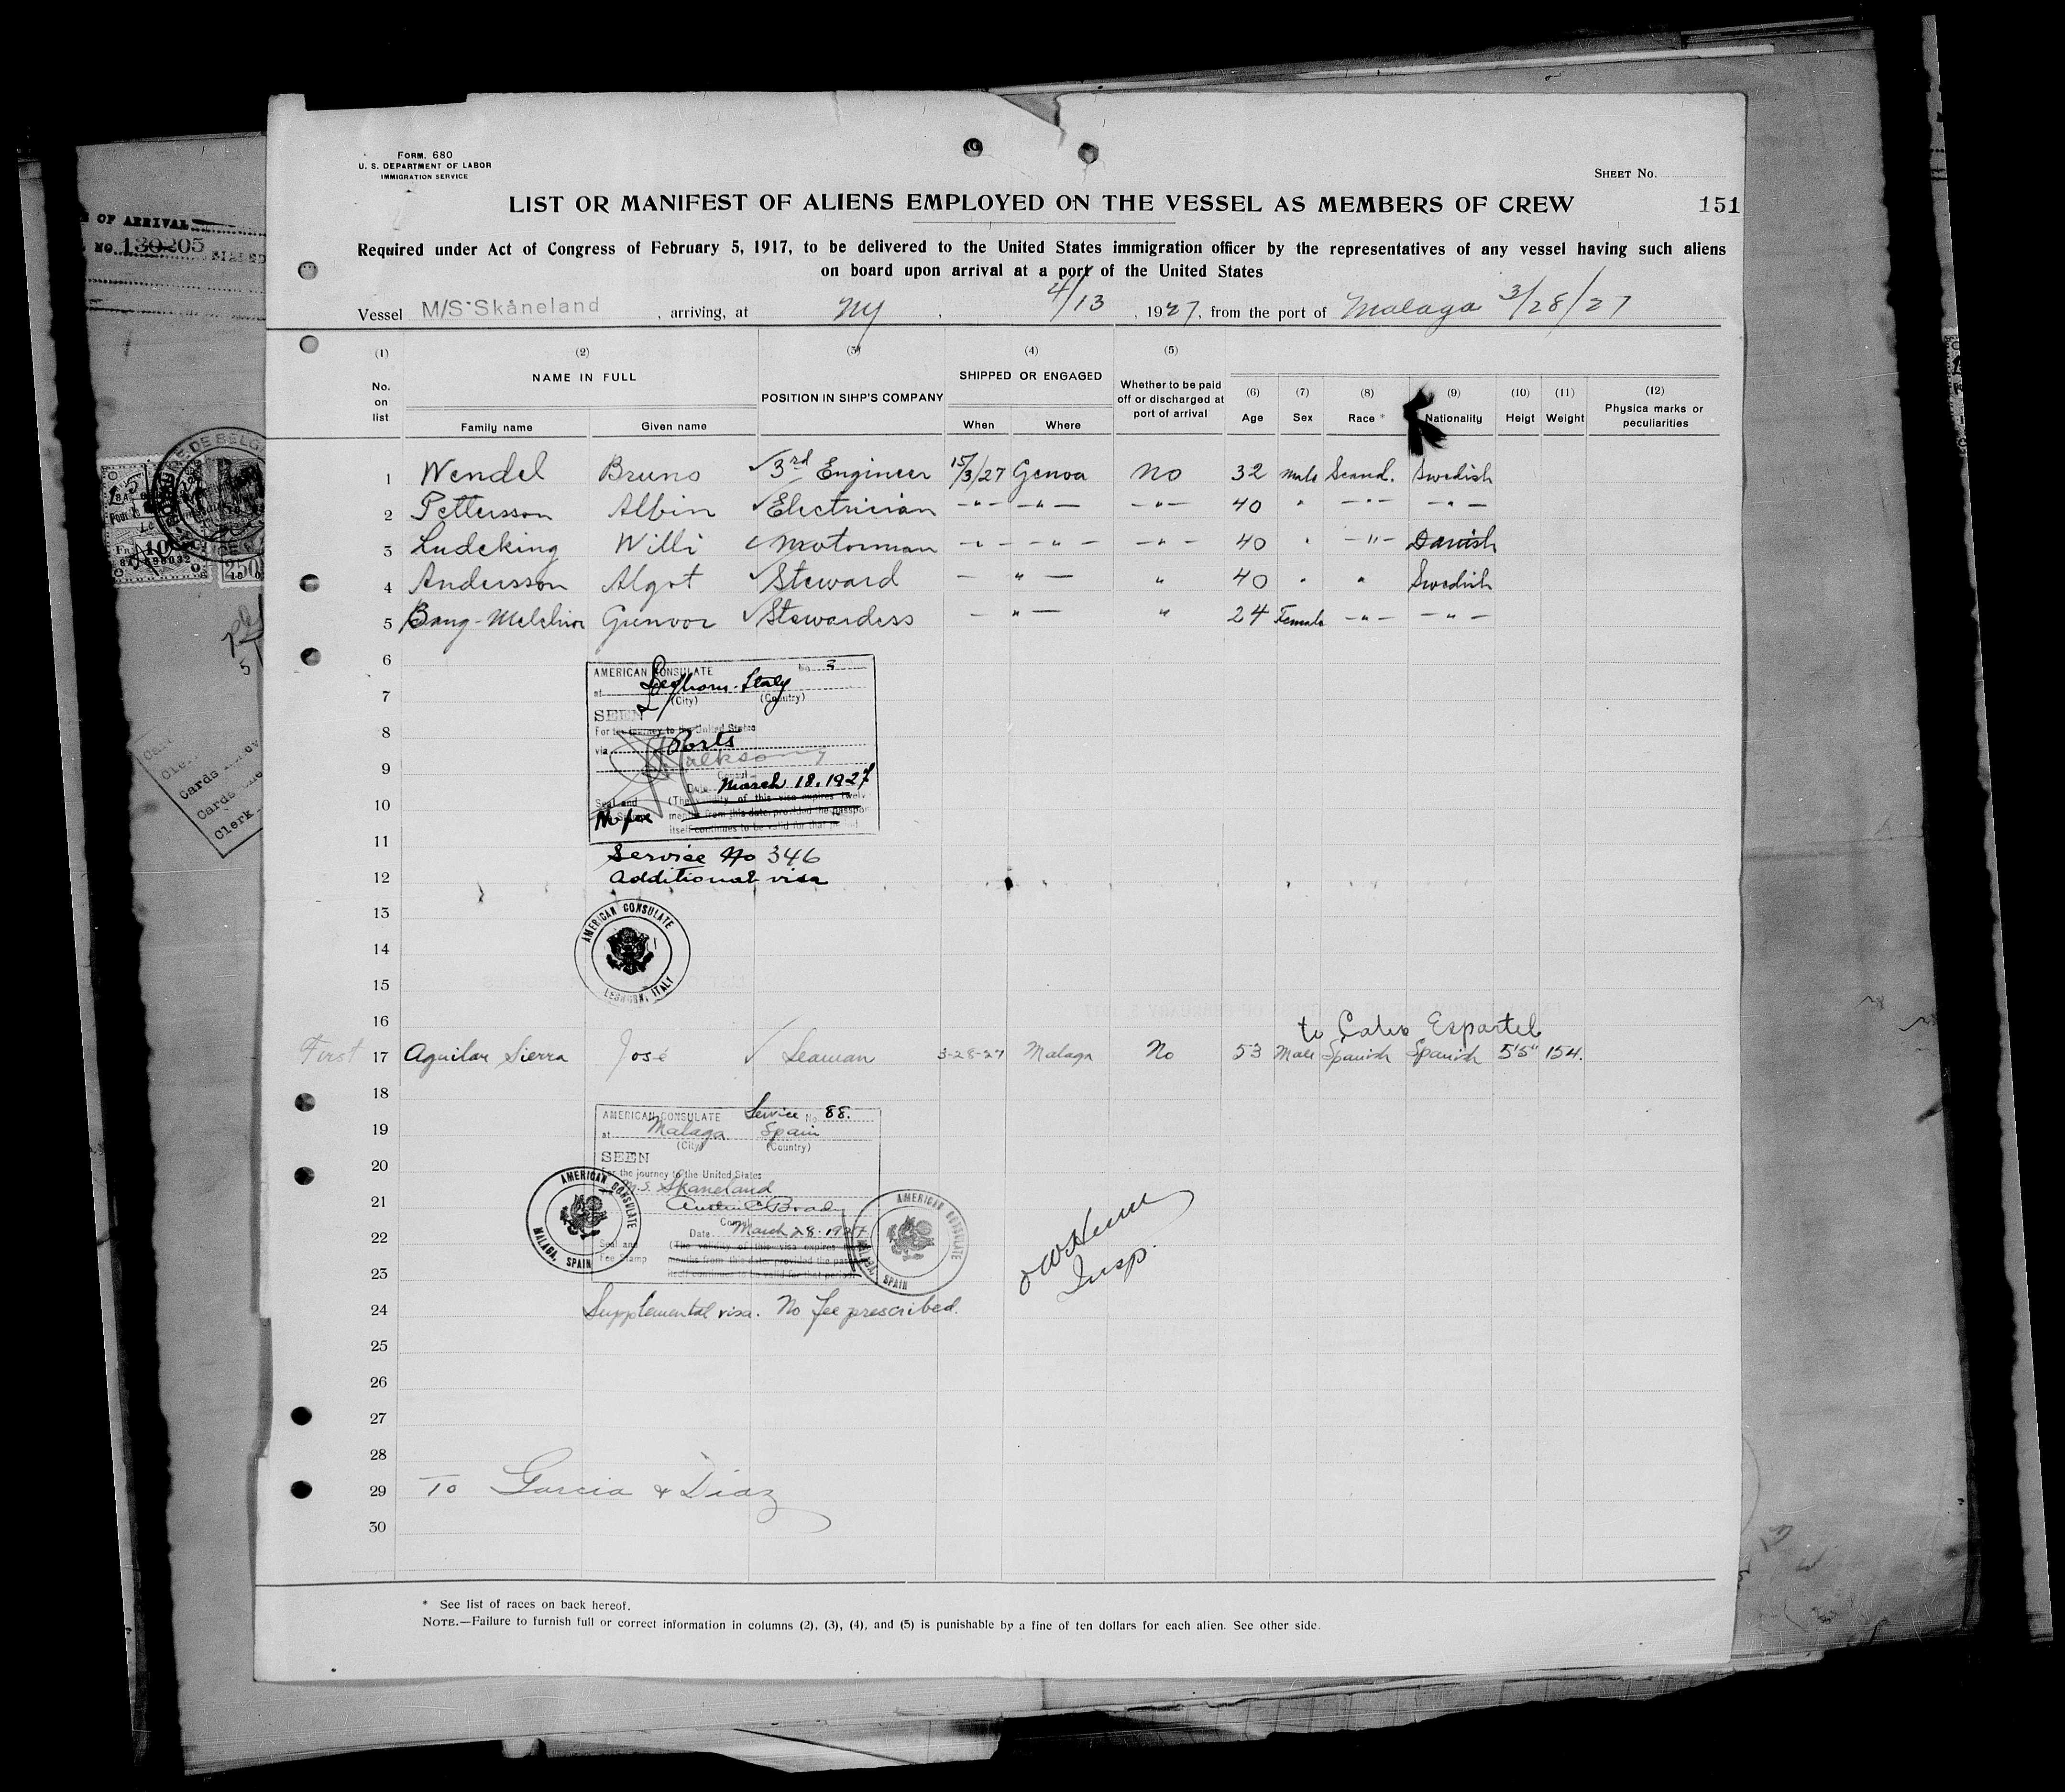 OF ARRIVAL
NO. 130205 FILED
FORM. 680
U. S. DEPARTMENT OF LABOR
IMMIGRATION SERVICE
SHEET No.
LIST OR MANIFEST OF ALIENS EMPLOYED ON THE VESSEL AS MEMBERS OF CREW 151
Required under Act of Congress of February 5, 1917, to be delivered to the United States immigration officer by the representatives of any vessel having such aliens
on board upon arrival at a port of the United States
Vessel M/S Skåneland, arriving, at NY, 4/13, 1927, from the port of Malaga 3/28/27
(1) (2) (3) (4) (5) (6) (7) (8) (9) (10) (11) (12)
No. on list NAME IN FULL POSITION IN SIHP'S COMPANY SHIPPED OR ENGAGED Whether to be paid off or discharged at port of arrival Age Sex Race * Nationality Heigt Weight Physica marks or peculiarities
Family name Given name When Where
1 Wendel Bruno ✓ 3rd Engineer 15/3/27 Genoa No 32 Male Scand. Swedish
2 Pettersson Albin ✓ Electrician -"- -"- -"- 40 " -"- -"-
3 Ludeking Willi ✓ Motorman -"- -"- -"- 40 " -"- Danish
4 Andersson Algot ✓ Steward -"- " 40 " " Swedish
5 Bang-Melchior Gunvor ✓ Stewardess -"- " 24 Female -"- -"-
6
7
8
9
10
11
12
13
14
15
16
AMERICAN CONSULATE No. 3
at Leghorn Italy
(City) (Country)
SEEN
For the journey to the United States
via Ports
Consul
Date March 18. 1927
Seal and
(The validity of this visa expires twelve
months from this date, provided the passport
itself continues to be valid for that period
No fee
Service No 346
Additional visa
AMERICAN CONSULATE
LEGHORN, ITALY
to Cabo Espartel
First 17 Aguilar Sierra José ✓ Seaman 3-28-27 Malaga No 53 Male Spanish Spanish 5'5" 154.
18
19
20
21
22
23
24
25
26
27
28
AMERICAN CONSULATE Service No. 88.
at Malaga Spain
(City) (Country)
SEEN
For the journey to the United States
M.S. Skaneland
Austin C Brady
Consul
Date March 28. 1927
Seal and
Fee Stamp
(The validity of this visa expires
months from this date, provided the pass
itself continues to be valid for that period.
AMERICAN CONSULATE
MALAGA, SPAIN
AMERICAN CONSULATE
MALAGA, SPAIN
Insp.
Supplemental visa. No fee prescribed.
29 To Garcia & Diaz
30
* See list of races on back hereof.
NOTE.—Failure to furnish full or correct information in columns (2), (3), (4), and (5) is punishable by a fine of ten dollars for each alien. See other side.